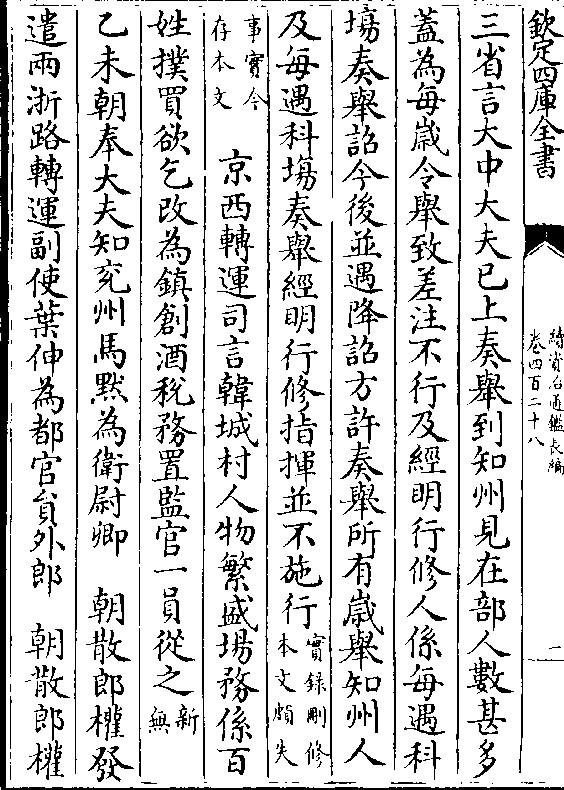 欽定四庫全書
續資治通鑑長編
卷四百二十八
二
三省言大中大夫已上奏舉到知州見在部人數甚多
蓋為每嵗令舉致差注不行及經明行修人係每遇科
塲奏舉詔今後並遇降詔方許奏舉所有嵗舉知州人
及每遇科塲奏舉經明行修指揮並不施行實録刪修
本文頗失
事實今
存本文
京西轉運司言韓城村人物繁盛塲務係百
姓撲買欲乞改為鎮創酒稅務置監官一員從之新
無
乙未朝奉大夫知兗州馬黙為衛尉卿　朝散郎權發
遣兩浙路轉運副使葉伸為都官貟外郎　朝散郎權